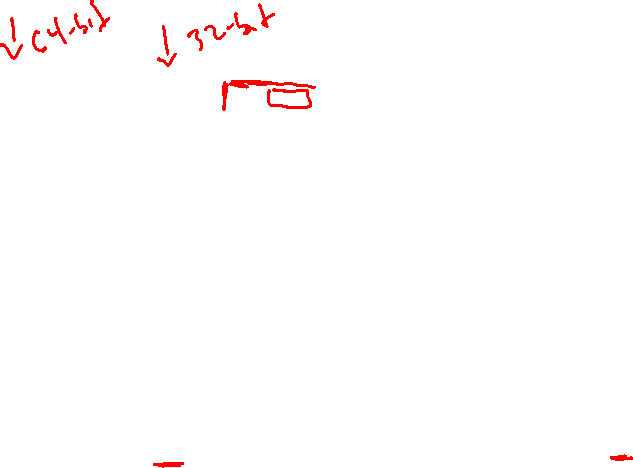 64-bit
32-bit